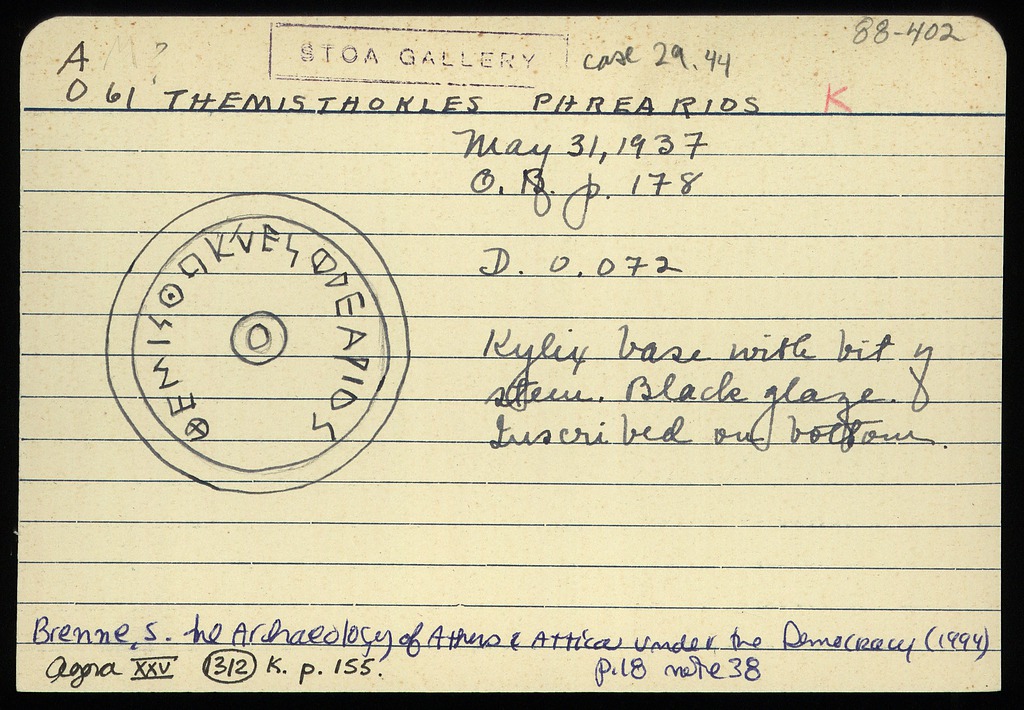 88-402
A M?
STOA GALLERY case 29.44
O 61 THEMISTHOKLES PHREARIOS K
May 31, 1937
O.B. p. 178
D. 0.072
ΘΕΜΙΣΘΟΚΛΕΣΦΡΕΑΡΙΟΣ
Kylix base with bit of
stem. Black glaze.
Inscribed on bottom.
Brenne, S. The Archaeology of Athens & Attica under the Democracy (1994)
Agora XXV 1312 K. p. 155. p.18 note 38